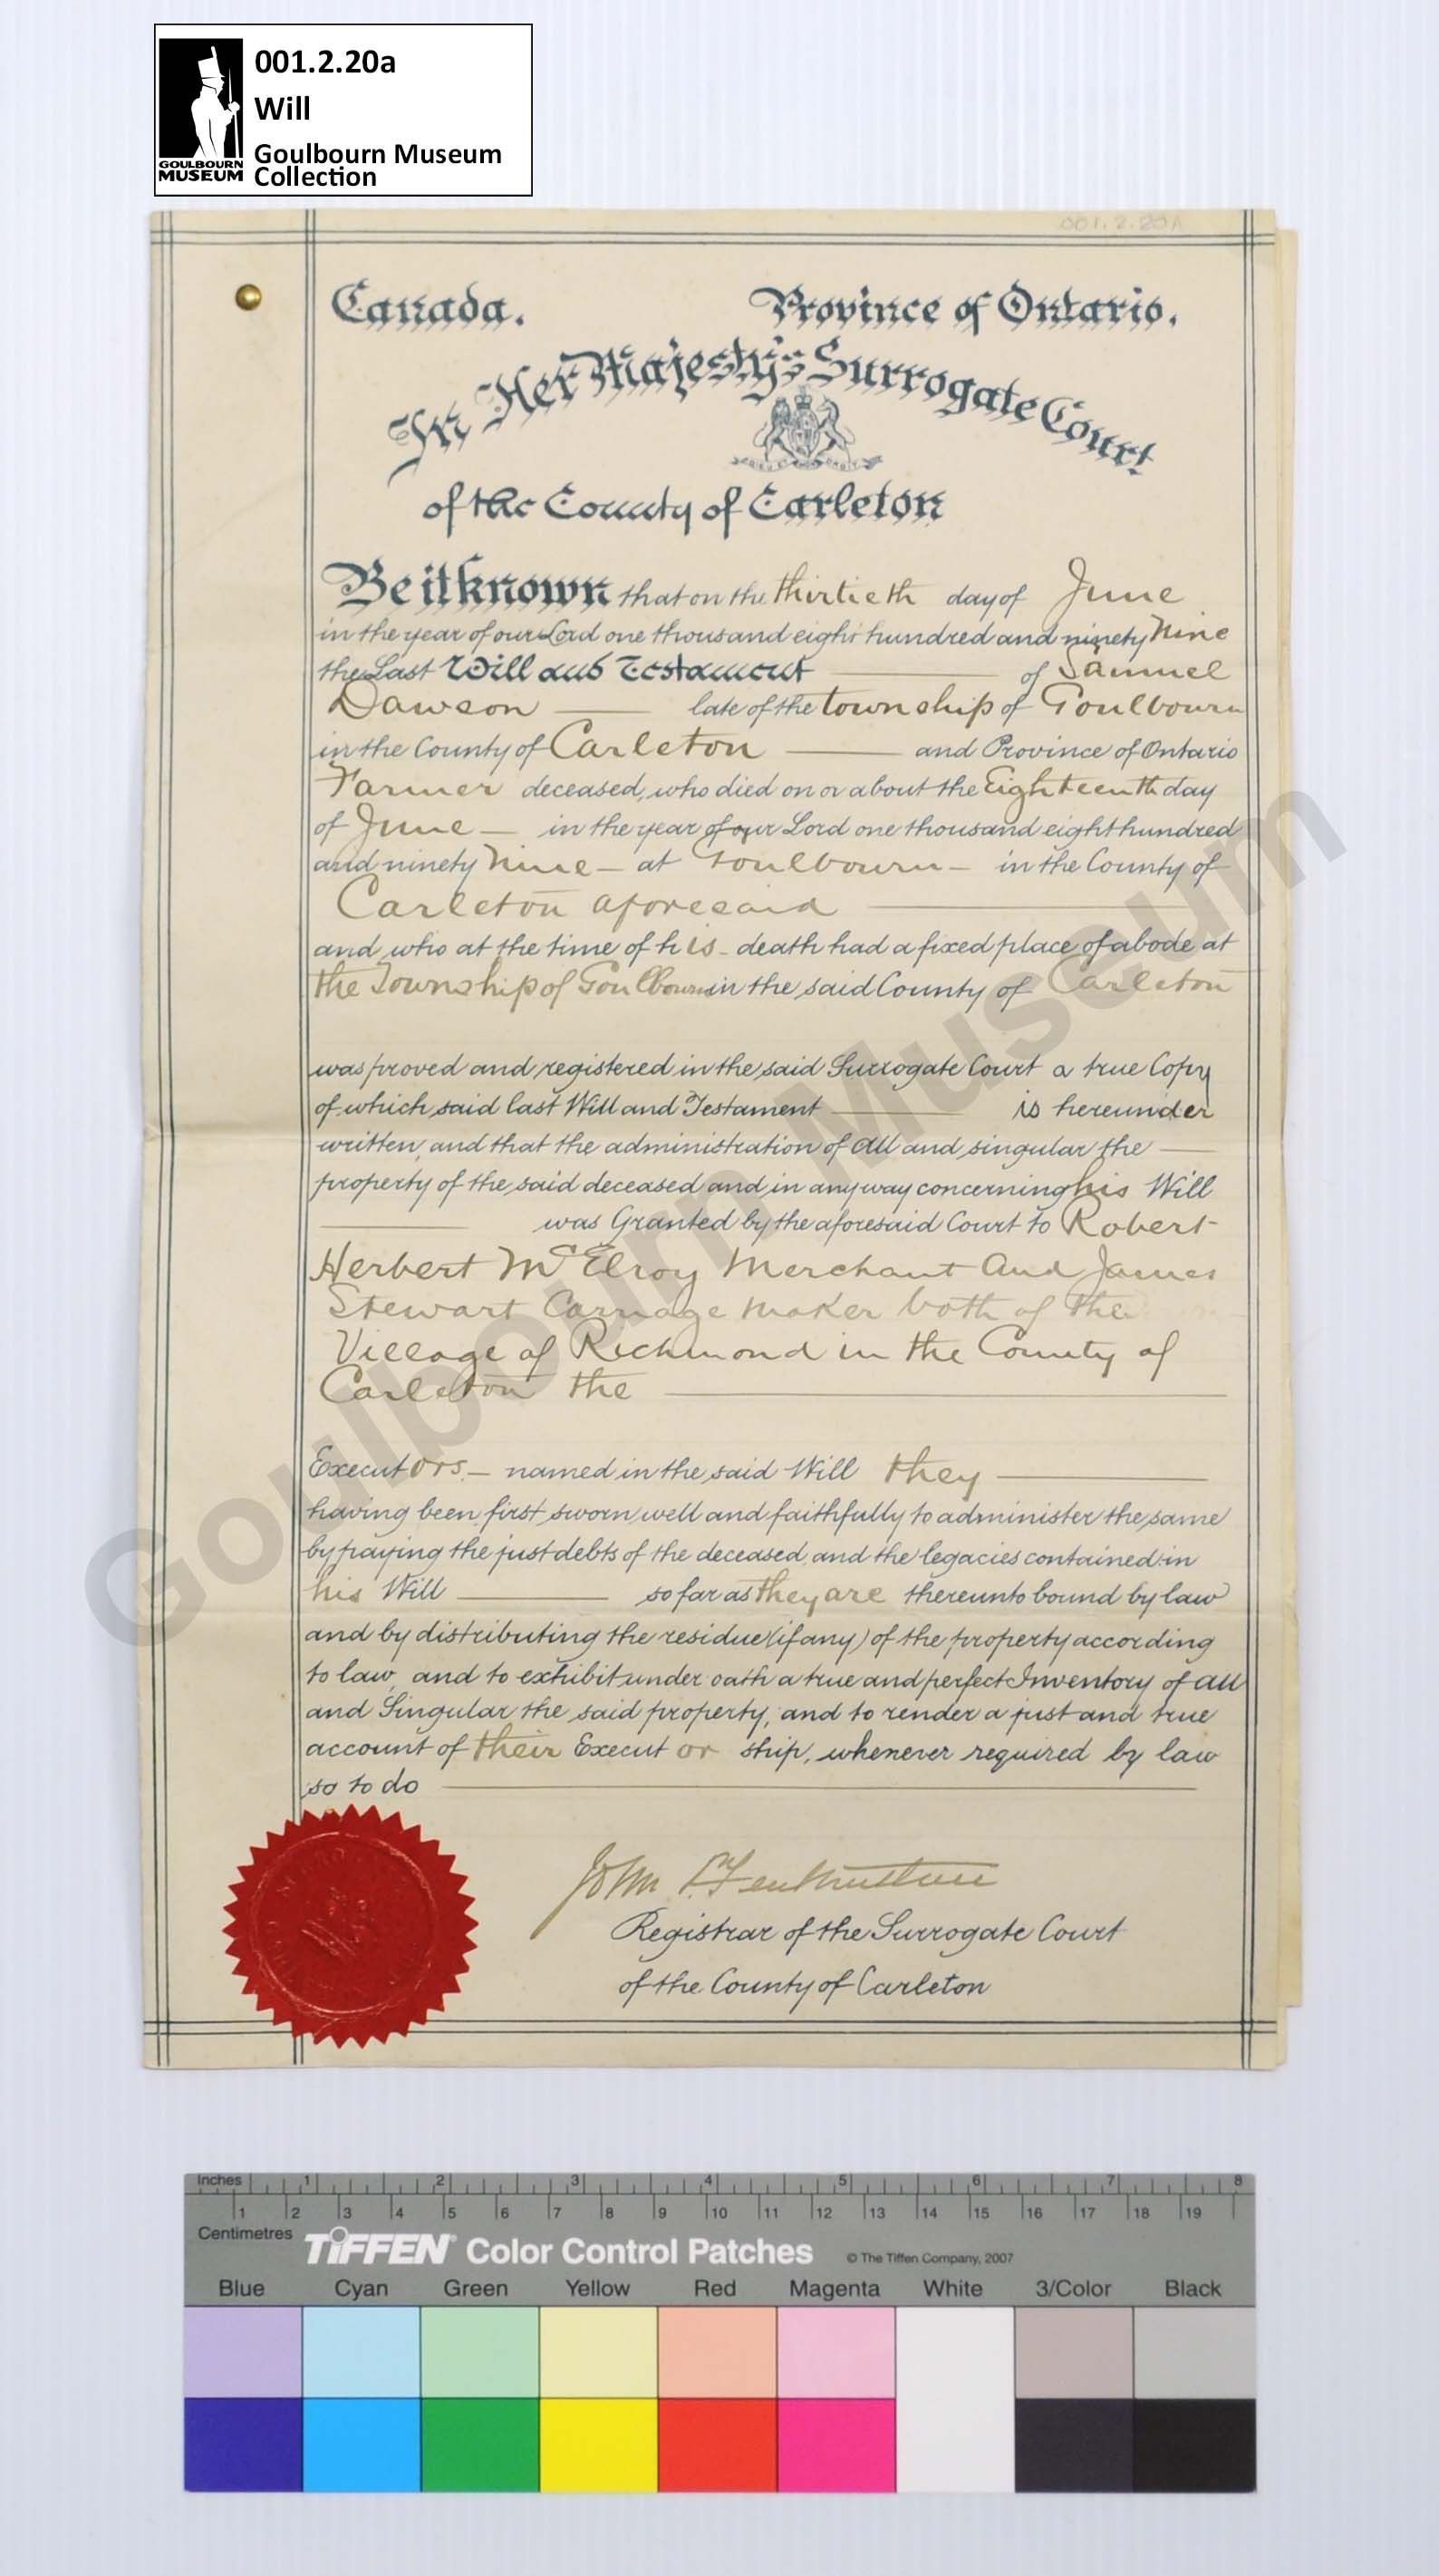 001.2.20a
Will
Goulbourn Museum
Collection
GOULBOURN
MUSEUM
001.2.20A
Canada. Province of Ontario.
In Her Majesty's Surrogate Court
of the County of Carleton
Be it known that on the thirtieth day of June
in the year of our Lord one thousand eight hundred and ninety Nine
the Last Will and Testament of Samuel
Dawson late of the township of Goulbourn
in the County of Carleton and Province of Ontario
Farmer deceased, who died on or about the Eighteenth day
of June in the year of our Lord one thousand eight hundred
and ninety Nine at Goulbourn in the County of
Carleton aforesaid
and who at the time of his death had a fixed place of abode at
the Township of Goulbourn in the said County of Carleton
was proved and registered in the said Surrogate Court a true Copy
of which said last Will and Testament is hereunder
written, and that the administration of all and singular the
property of the said deceased and in any way concerning his Will
was Granted by the aforesaid Court to Robert
Herbert McElroy Merchant and James
Stewart Carriage Maker both of the
Village of Richmond in the County of
Carleton the
Executors named in the said Will they
having been first sworn well and faithfully to administer the same
by paying the just debts of the deceased and the legacies contained in
his Will so far as they are thereunto bound by law
and by distributing the residue (if any) of the property according
to law, and to exhibit under oath a true and perfect Inventory of all
and Singular the said property, and to render a just and true
account of their Executor ship, whenever required by law
so to do
John
Registrar of the Surrogate Court
of the County of Carleton
Goulbourn Museum
Inches 1 2 3 4 5 6 7 8
1 2 3 4 5 6 7 8 9 10 11 12 13 14 15 16 17 18 19
Centimetres
TIFFEN Color Control Patches © The Tiffen Company, 2007
Blue Cyan Green Yellow Red Magenta White 3/Color Black